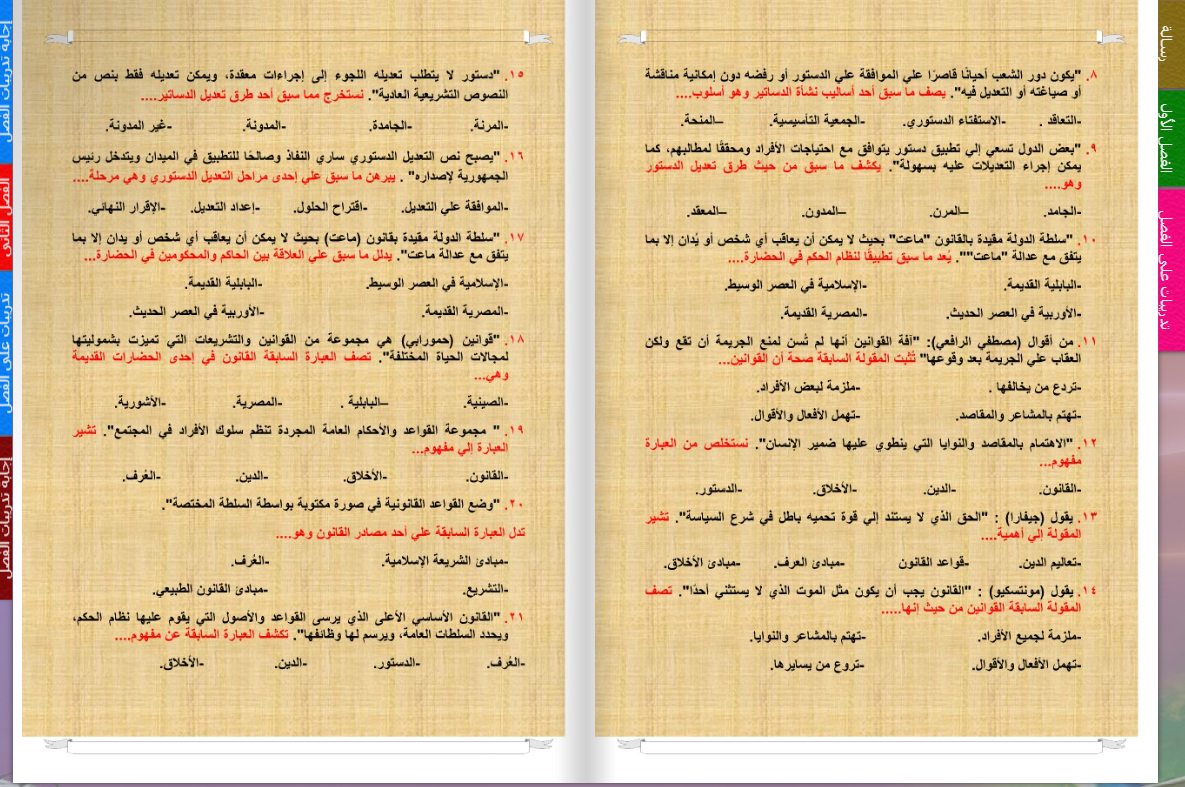 رسالة
الفصل الأول
تدريبات على الفصل
٨. "يكون دور الشعب أحيانًا قاصرًا علي الموافقة علي الدستور أو رفضه دون إمكانية مناقشة
أو صياغته أو التعديل فيه". يصف ما سبق أحد أساليب نشأة الدساتير وهو أسلوب....
-التعاقد . -الاستفتاء الدستوري. -الجمعية التأسيسية. -المنحة.
٩. "بعض الدول تسعي إلي تطبيق دستور يتوافق مع احتياجات الأفراد ومحققًا لمطالبهم، كما
يمكن إجراء التعديلات عليه بسهولة". يكشف ما سبق من حيث طرق تعديل الدستور
وهو....
-الجامد. –المرن. –المدون. –المعقد.
١٠. "سلطة الدولة مقيدة بالقانون "ماعت" بحيث لا يمكن أن يعاقب أي شخص أو يُدان إلا بما
يتفق مع عدالة "ماعت"". يُعد ما سبق تطبيقًا لنظام الحكم في الحضارة....
-البابلية القديمة. -الإسلامية في العصر الوسيط.
-الأوربية في العصر الحديث. -المصرية القديمة.
١١. من أقوال (مصطفي الرافعي): "آفة القوانين أنها لم تُسن لمنع الجريمة أن تقع ولكن
العقاب علي الجريمة بعد وقوعها" تُثبت المقولة السابقة صحة أن القوانين...
-تردع من يخالفها . -ملزمة لبعض الأفراد.
-تهتم بالمشاعر والمقاصد. -تهمل الأفعال والأقوال.
١٢. "الاهتمام بالمقاصد والنوايا التي ينطوي عليها ضمير الإنسان". نستخلص من العبارة
مفهوم...
-القانون. -الدين. -الأخلاق. -الدستور.
١٣. يقول (جيفارا) : "الحق الذي لا يستند إلي قوة تحميه باطل في شرع السياسة". تشير
المقولة إلي أهمية....
-تعاليم الدين. -قواعد القانون -مبادئ العرف. -مبادئ الأخلاق.
١٤. يقول (مونتسكيو) : "القانون يجب أن يكون مثل الموت الذي لا يستثني أحدًا". تصف
المقولة السابقة القوانين من حيث إنها.....
-ملزمة لجميع الأفراد. -تهتم بالمشاعر والنوايا.
-تهمل الأفعال والأقوال. -تروع من يسايرها.
١٥. "دستور لا يتطلب تعديله اللجوء إلى إجراءات معقدة، ويمكن تعديله فقط بنص من
النصوص التشريعية العادية". نستخرج مما سبق أحد طرق تعديل الدساتير....
-المرنة. -الجامدة. -المدونة. -غير المدونة.
١٦. "يصبح نص التعديل الدستوري ساري النفاذ وصالحًا للتطبيق في الميدان ويتدخل رئيس
الجمهورية لإصداره" . يبرهن ما سبق علي إحدى مراحل التعديل الدستوري وهي مرحلة....
-الموافقة علي التعديل. -اقتراح الحلول. -إعداد التعديل. -الإقرار النهائي.
١٧. "سلطة الدولة مقيدة بقانون (ماعت) بحيث لا يمكن أن يعاقب أي شخص أو يدان إلا بما
يتفق مع عدالة ماعت". يدلل ما سبق علي العلاقة بين الحاكم والمحكومين في الحضارة...
-الإسلامية في العصر الوسيط. -البابلية القديمة.
-المصرية القديمة. -الأوربية في العصر الحديث.
١٨. "قوانين (حمورابي) هي مجموعة من القوانين والتشريعات التي تميزت بشموليتها
لمجالات الحياة المختلفة". تصف العبارة السابقة القانون في إحدى الحضارات القديمة
وهي...
-الصينية. –البابلية . -المصرية. -الأشورية.
١٩. " مجموعة القواعد والأحكام العامة المجردة تنظم سلوك الأفراد في المجتمع". تشير
العبارة إلي مفهوم...
-القانون. -الأخلاق. -الدين. -العُرف.
٢٠. "وضع القواعد القانونية في صورة مكتوبة بواسطة السلطة المختصة".
تدل العبارة السابقة علي أحد مصادر القانون وهو....
-مبادئ الشريعة الإسلامية. -العُرف.
-التشريع. -مبادئ القانون الطبيعي.
٢١. "القانون الأساسي الأعلى الذي يرسى القواعد والأصول التي يقوم عليها نظام الحكم،
ويحدد السلطات العامة، ويرسم لها وظائفها". تكشف العبارة السابقة عن مفهوم....
-العُرف. -الدستور. -الدين. -الأخلاق.
إجابة تدريبات الفصل
الفصل الثانى
تدريبات على الفصل
إجابة تدريبات الفصل